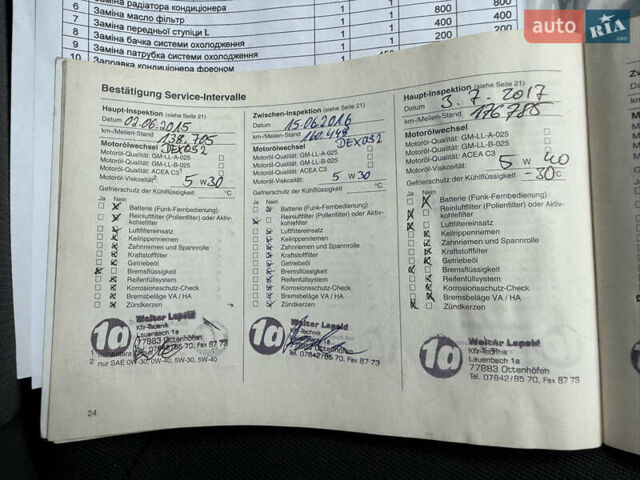 6 Заміна радіатора кондиціонера 1 800 800
7 Заміна масло фільтр 1 400 400
8 Заміна передньої ступіци L 1
9 Заміна бачка системи охолодження 1 200 200
9 Заміна патрубка системи охолодження 1 400 400
10 Заправка кондиціонера фреоном
auto RIA .com
Bestätigung Service-Intervalle
Haupt-Inspektion (siehe Seite 21)
Datum 02.06.2015
km-/Meilen-Stand 138.705
Motorölwechsel DEXOS2
Motoröl-Qualität: GM-LL-A-025
Motoröl-Qualität: GM-LL-B-025
Motoröl-Qualität: ACEA C3¹
Motoröl-Viskosität² 5 W 30
Gefrierschutz der Kühlflüssigkeit °C
Ja Nein
Batterie (Funk-Fernbedienung)
Reinluftfilter (Pollenfilter) oder Aktivkohlefilter
Luftfiltereinsatz
Keilrippenriemen
Zahnriemen und Spannrolle
Kraftstofffilter
Getriebeöl
Bremsflüssigkeit
Reifenfüllsystem
Korrosionsschutz-Check
Bremsbeläge VA / HA
Zündkerzen
1a
Walter Lepold
Kfz-Technik
Lauenbach 1a
77883 Ottenhöfen
Tel. 07842/85 70, Fax 87 73
2 nur SAE 0W-30, 0W-40, 5W-30, 5W-40
24
Zwischen-Inspektion (siehe Seite 21)
Datum 15.06.2016
km-/Meilen-Stand 160.448
Motorölwechsel DEXOS2
Motoröl-Qualität: GM-LL-A-025
Motoröl-Qualität: GM-LL-B-025
Motoröl-Qualität: ACEA C3
Motoröl-Viskosität: 5 W 30
Gefrierschutz der Kühlflüssigkeit °C
Ja Nein
Batterie (Funk-Fernbedienung)
Reinluftfilter (Pollenfilter) oder Aktivkohlefilter
Luftfiltereinsatz
Keilrippenriemen
Zahnriemen und Spannrolle
Kraftstofffilter
Getriebeöl
Bremsflüssigkeit
Reifenfüllsystem
Korrosionsschutz-Check
Bremsbeläge VA / HA
Zündkerzen
1a
Walter Lepold
Kfz-Technik
Lauenbach 1a
77883 Ottenhöfen
Tel. 07842/85 70, Fax 87 73
Haupt-Inspektion (siehe Seite 21)
Datum 3.7.2017
km-/Meilen-Stand 176785
Motorölwechsel
Motoröl-Qualität: GM-LL-A-025
Motoröl-Qualität: GM-LL-B-025
Motoröl-Qualität: ACEA C3
Motoröl-Viskosität: 5 W 40
Gefrierschutz der Kühlflüssigkeit -30 °C
Ja Nein
Batterie (Funk-Fernbedienung)
Reinluftfilter (Pollenfilter) oder Aktivkohlefilter
Luftfiltereinsatz
Keilrippenriemen
Zahnriemen und Spannrolle
Kraftstofffilter
Getriebeöl
Bremsflüssigkeit
Reifenfüllsystem
Korrosionsschutz-Check
Bremsbeläge VA / HA
Zündkerzen
1a
Walter Lepold
Kfz-Technik
Lauenbach 1a
77883 Ottenhöfen
Tel. 07842/85 70, Fax 87 73